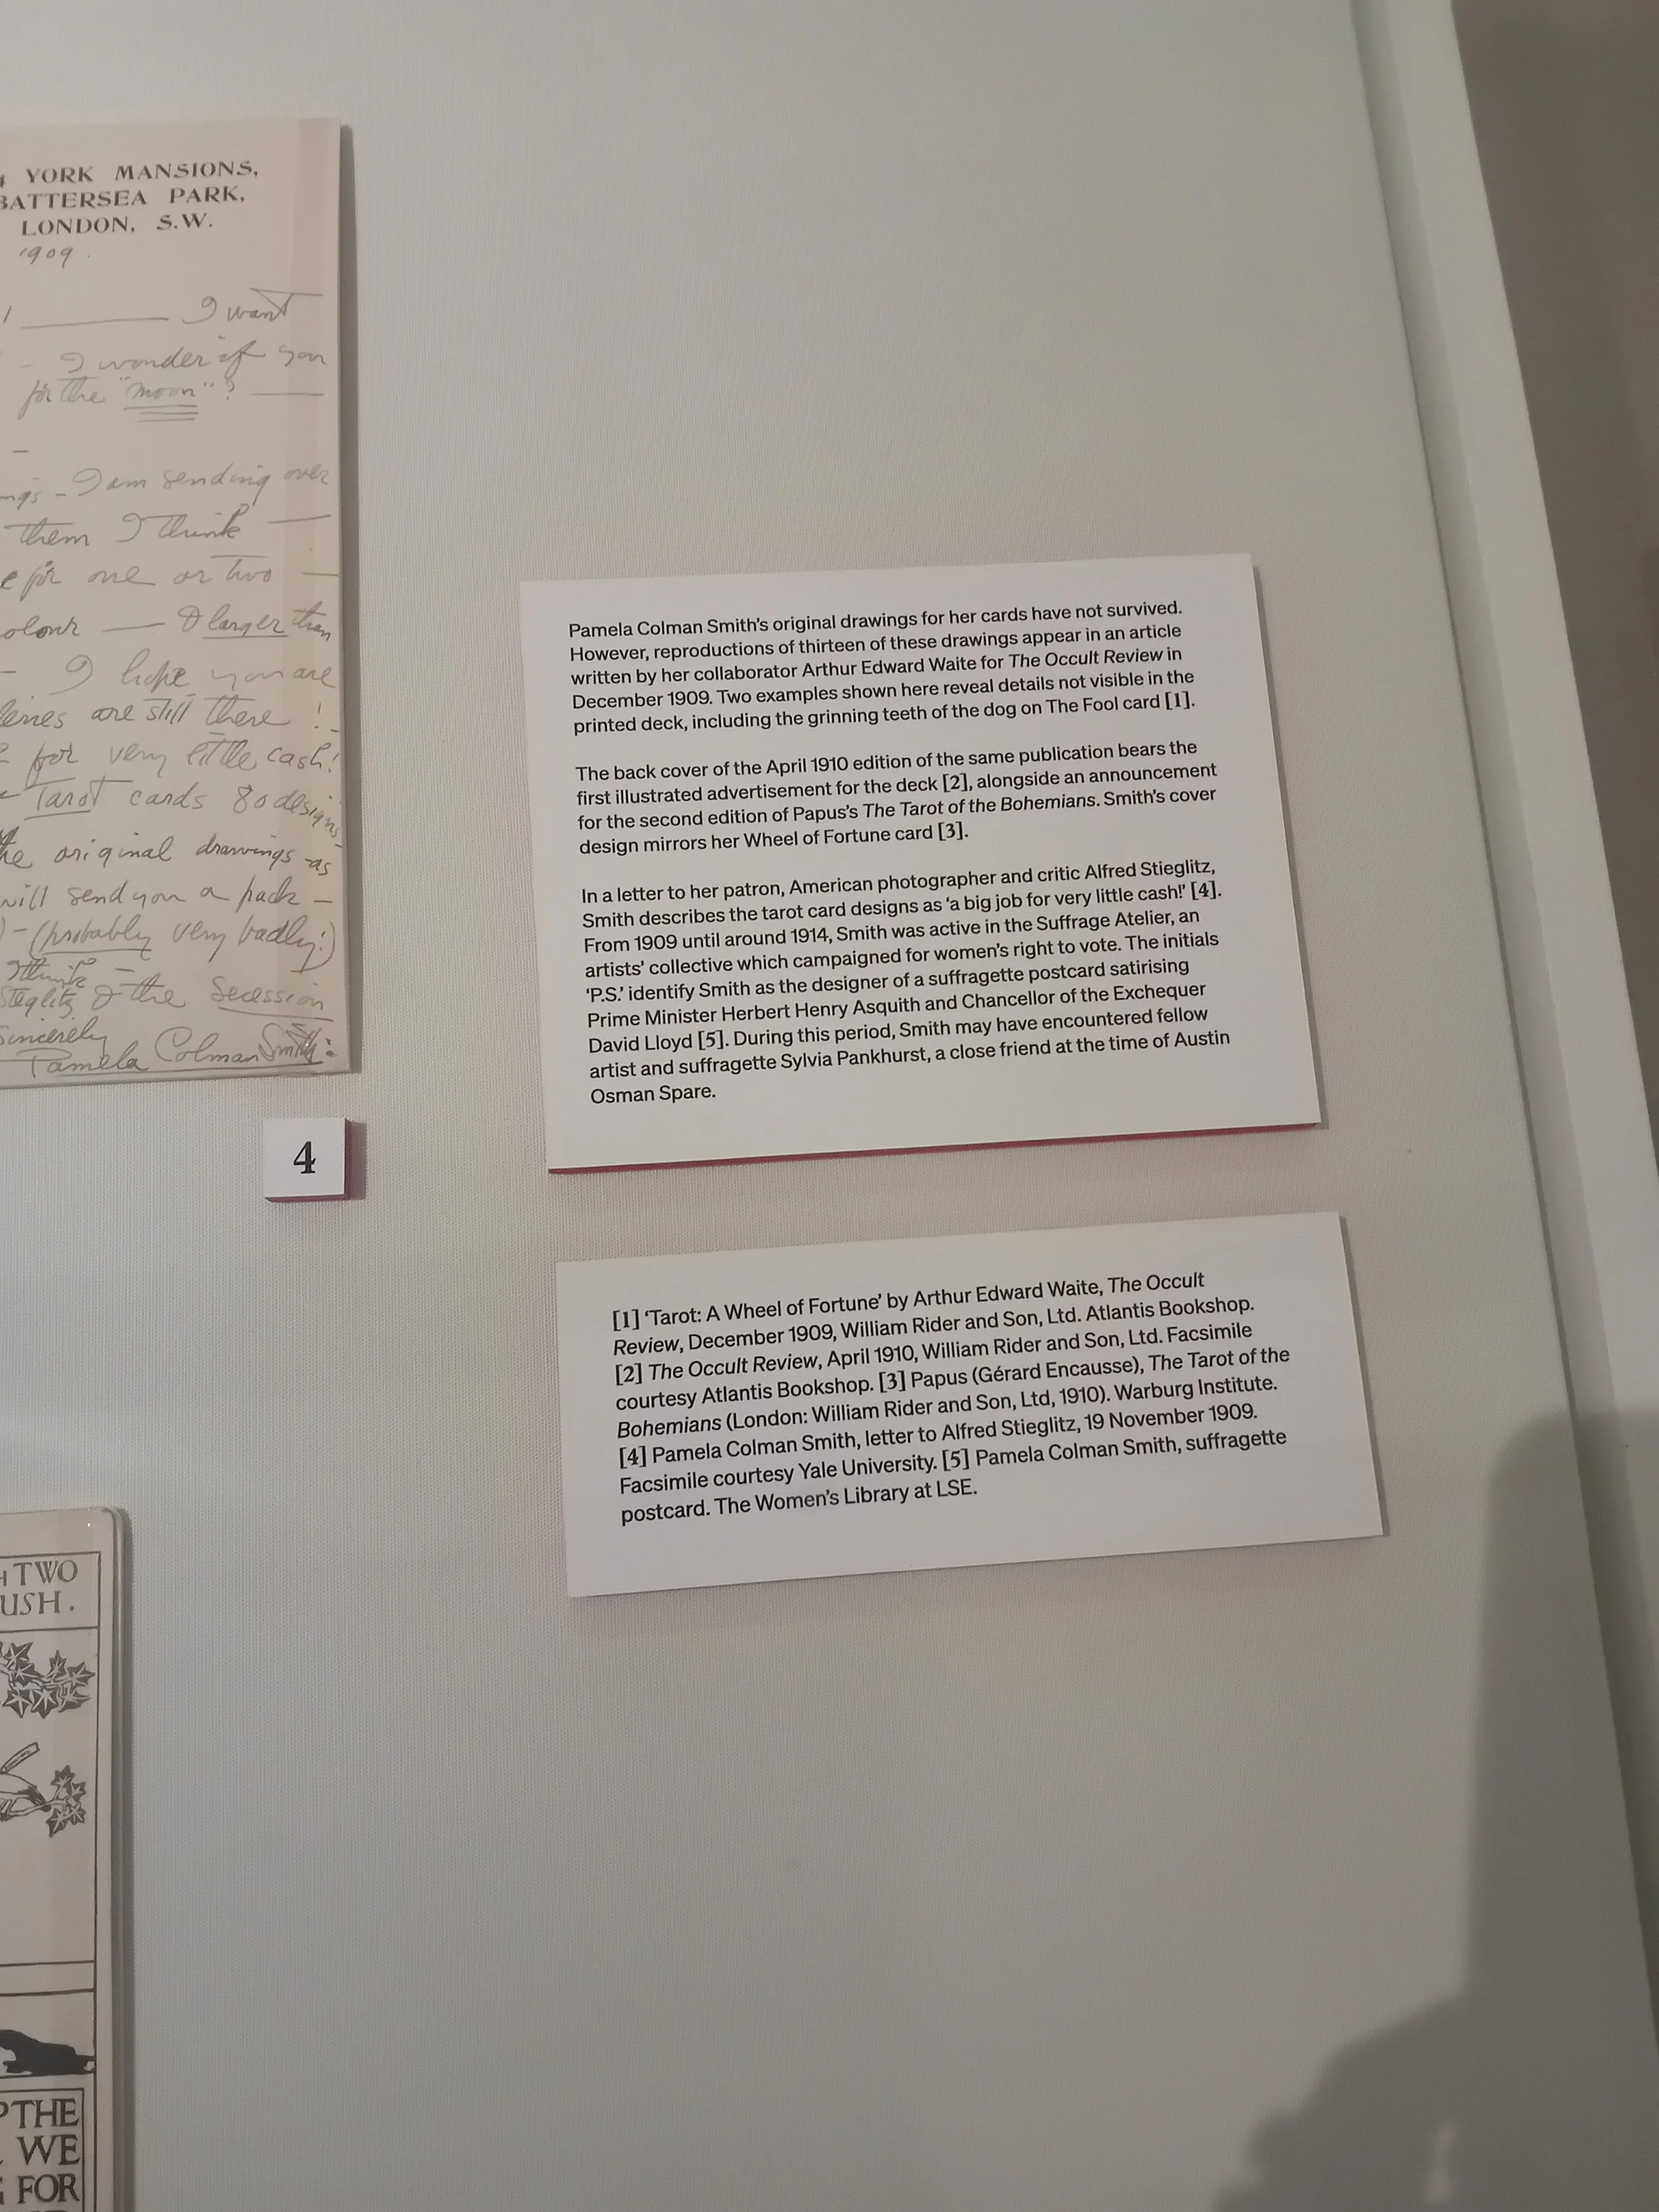 YORK MANSIONS,
BATTERSEA PARK,
LONDON, S.W.
1909.
I want
- I wonder if you
for the "moon"?
- I am sending over
them I think
for one or two
& larger than
- I hope you are
are still there!
for very little cash!
Tarot cards 80 designs
the original drawings - as
will send you a pack -
(probably very badly!)
think
& the Secession
Sincerely
Pamela Colman Smith:
4
Pamela Colman Smith's original drawings for her cards have not survived.
However, reproductions of thirteen of these drawings appear in an article
written by her collaborator Arthur Edward Waite for The Occult Review in
December 1909. Two examples shown here reveal details not visible in the
printed deck, including the grinning teeth of the dog on The Fool card [1].
The back cover of the April 1910 edition of the same publication bears the
first illustrated advertisement for the deck [2], alongside an announcement
for the second edition of Papus's The Tarot of the Bohemians. Smith's cover
design mirrors her Wheel of Fortune card [3].
In a letter to her patron, American photographer and critic Alfred Stieglitz,
Smith describes the tarot card designs as 'a big job for very little cash!' [4].
From 1909 until around 1914, Smith was active in the Suffrage Atelier, an
artists' collective which campaigned for women's right to vote. The initials
'P.S.' identify Smith as the designer of a suffragette postcard satirising
Prime Minister Herbert Henry Asquith and Chancellor of the Exchequer
David Lloyd [5]. During this period, Smith may have encountered fellow
artist and suffragette Sylvia Pankhurst, a close friend at the time of Austin
Osman Spare.
[1] 'Tarot: A Wheel of Fortune' by Arthur Edward Waite, The Occult
Review, December 1909, William Rider and Son, Ltd. Atlantis Bookshop.
[2] The Occult Review, April 1910, William Rider and Son, Ltd. Facsimile
courtesy Atlantis Bookshop. [3] Papus (Gérard Encausse), The Tarot of the
Bohemians (London: William Rider and Son, Ltd, 1910). Warburg Institute.
[4] Pamela Colman Smith, letter to Alfred Stieglitz, 19 November 1909.
Facsimile courtesy Yale University. [5] Pamela Colman Smith, suffragette
postcard. The Women's Library at LSE.
TWO
USH.
THE
WE
FOR